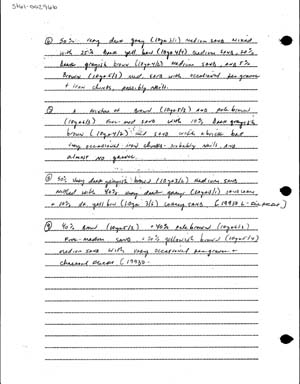 SH61-002966
⑥ 50% Very dark gray (10yr 3/1) medium sand mixed
with 25% dark yell brown (10yr 4/4) medium sand, 20%
dark grayish brown (10yr 4/2) medium sand, and 5%
brown (10yr 5/3) med sand with occasional pea gravel
+ iron chunks, possibly nails.
⑦ A mixture of brown (10yr 5/3) and pale brown
(10yr 6/3) fine-med sand with 10% dark grayish
brown (10yr 4/2) med sand with
very occasional iron chunks - probably nails, and
almost no gravel.
⑧ 50% Very dark grayish brown (10yr 3/2) medium sand
mixed with 40% very dark gray (10yr 3/1)
+ 10% dk. yell brn (10yr 3/6) coarse sand [1993
⑨ 40% brown (10yr 5/3) + 40% pale brown (10yr 6/3)
fine-medium sand + 20% yellowish brown (10yr 5/4)
medium sand with very occasional pea gravel +
charcoal flecks [1993D